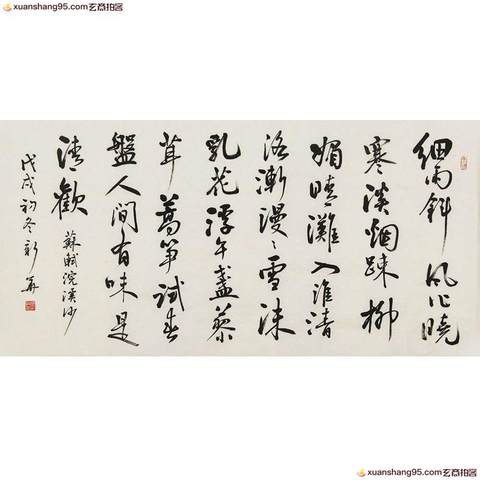 xuanshang95.com玄商拍客
細雨斜風作曉
寒淡烟疎柳
媚晴灘入淮清
洛漸漫〻雪沫
乳花浮午盞蓼
茸蒿笋試春
盤人間有味是
清歡
蘇軾浣溪沙
戊戌初冬新華
xuanshang95.com玄商拍客